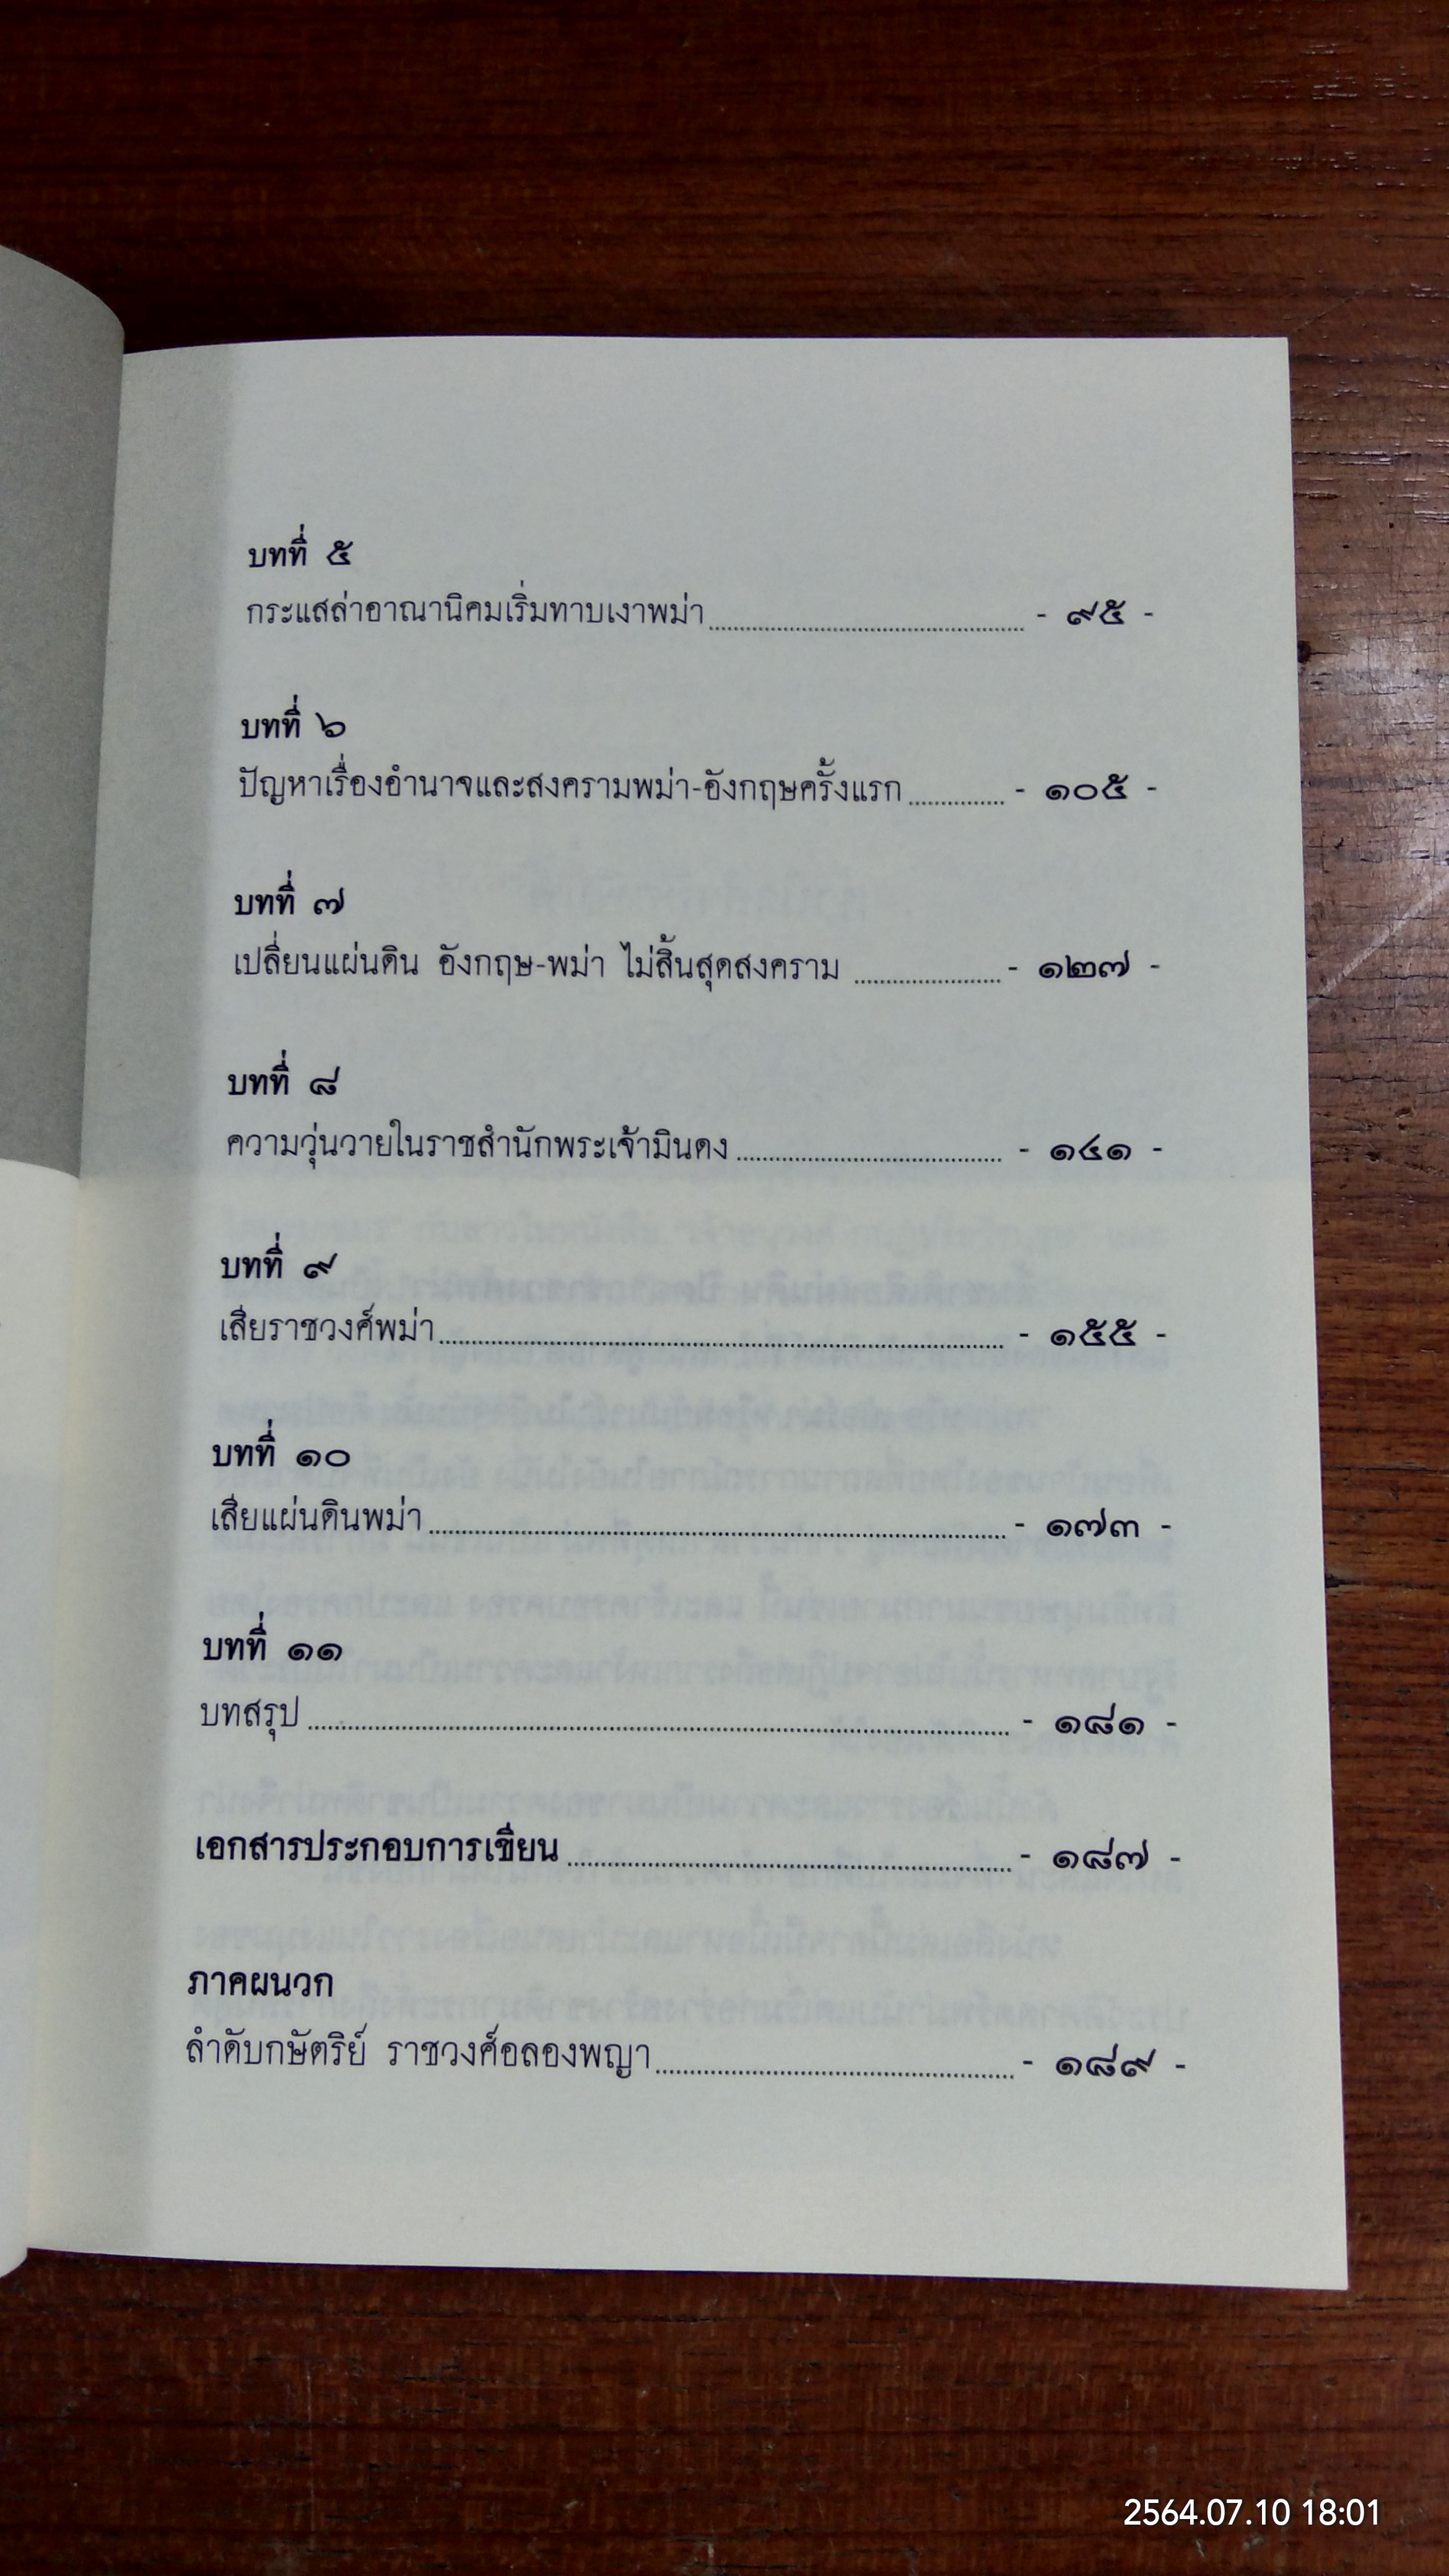 บทที่ ๕
กระแสล่าอาณานิคมเริ่มทาบเงาพม่า - ๙๕ -
บทที่ ๖
ปัญหาเรื่องอำนาจและสงครามพม่า-อังกฤษครั้งแรก - ๑๐๕ -
บทที่ ๗
เปลี่ยนแผ่นดิน อังกฤษ-พม่า ไม่สิ้นสุดสงคราม - ๑๒๗ -
บทที่ ๘
ความวุ่นวายในราชสำนักพระเจ้ามินดง - ๑๔๑ -
บทที่ ๙
เสียราชวงศ์พม่า - ๑๕๕ -
บทที่ ๑๐
เสียแผ่นดินพม่า - ๑๗๓ -
บทที่ ๑๑
บทสรุป - ๑๘๑ -
เอกสารประกอบการเขียน - ๑๘๗ -
ภาคผนวก
ลำดับกษัตริย์ ราชวงศ์อลองพญา - ๑๘๙ -
2564.07.10 18:01